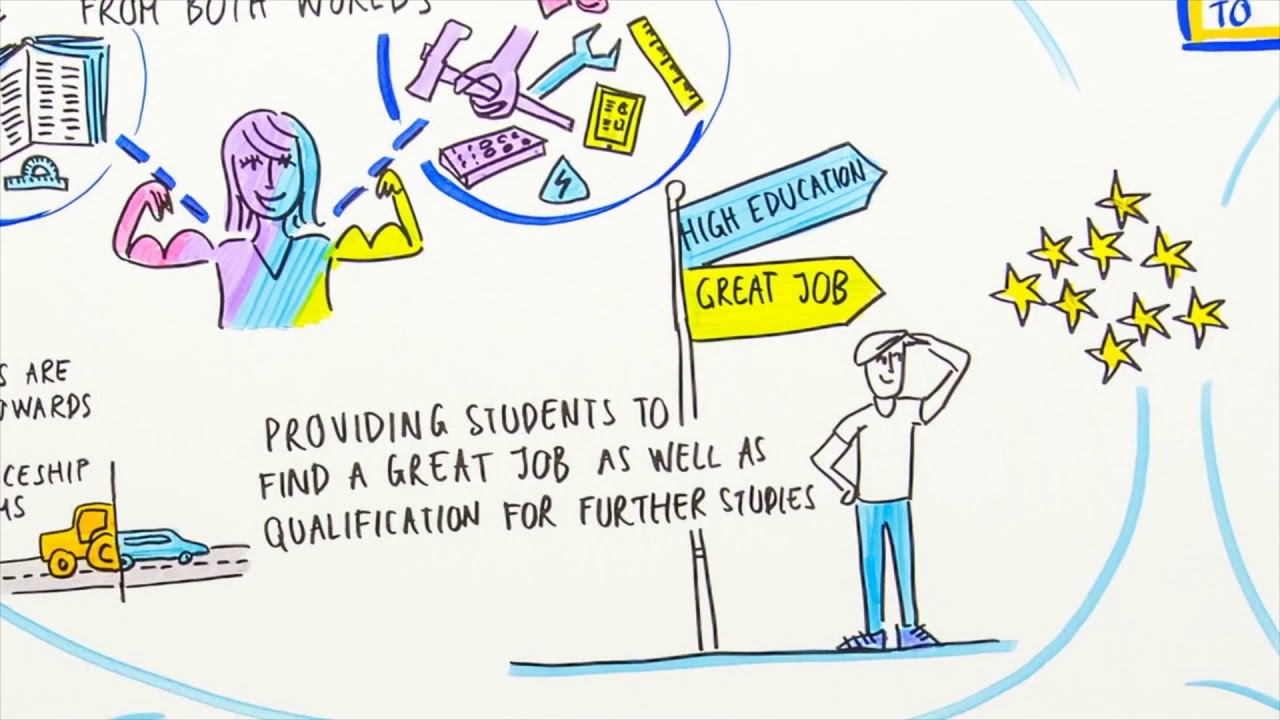 FROM BOTH WORLDS
TO
HIGH EDUCATION
GREAT JOB
ARE
PROVIDING STUDENTS TO
FIND A GREAT JOB AS WELL AS
QUALIFICATION FOR FURTHER STUDIES